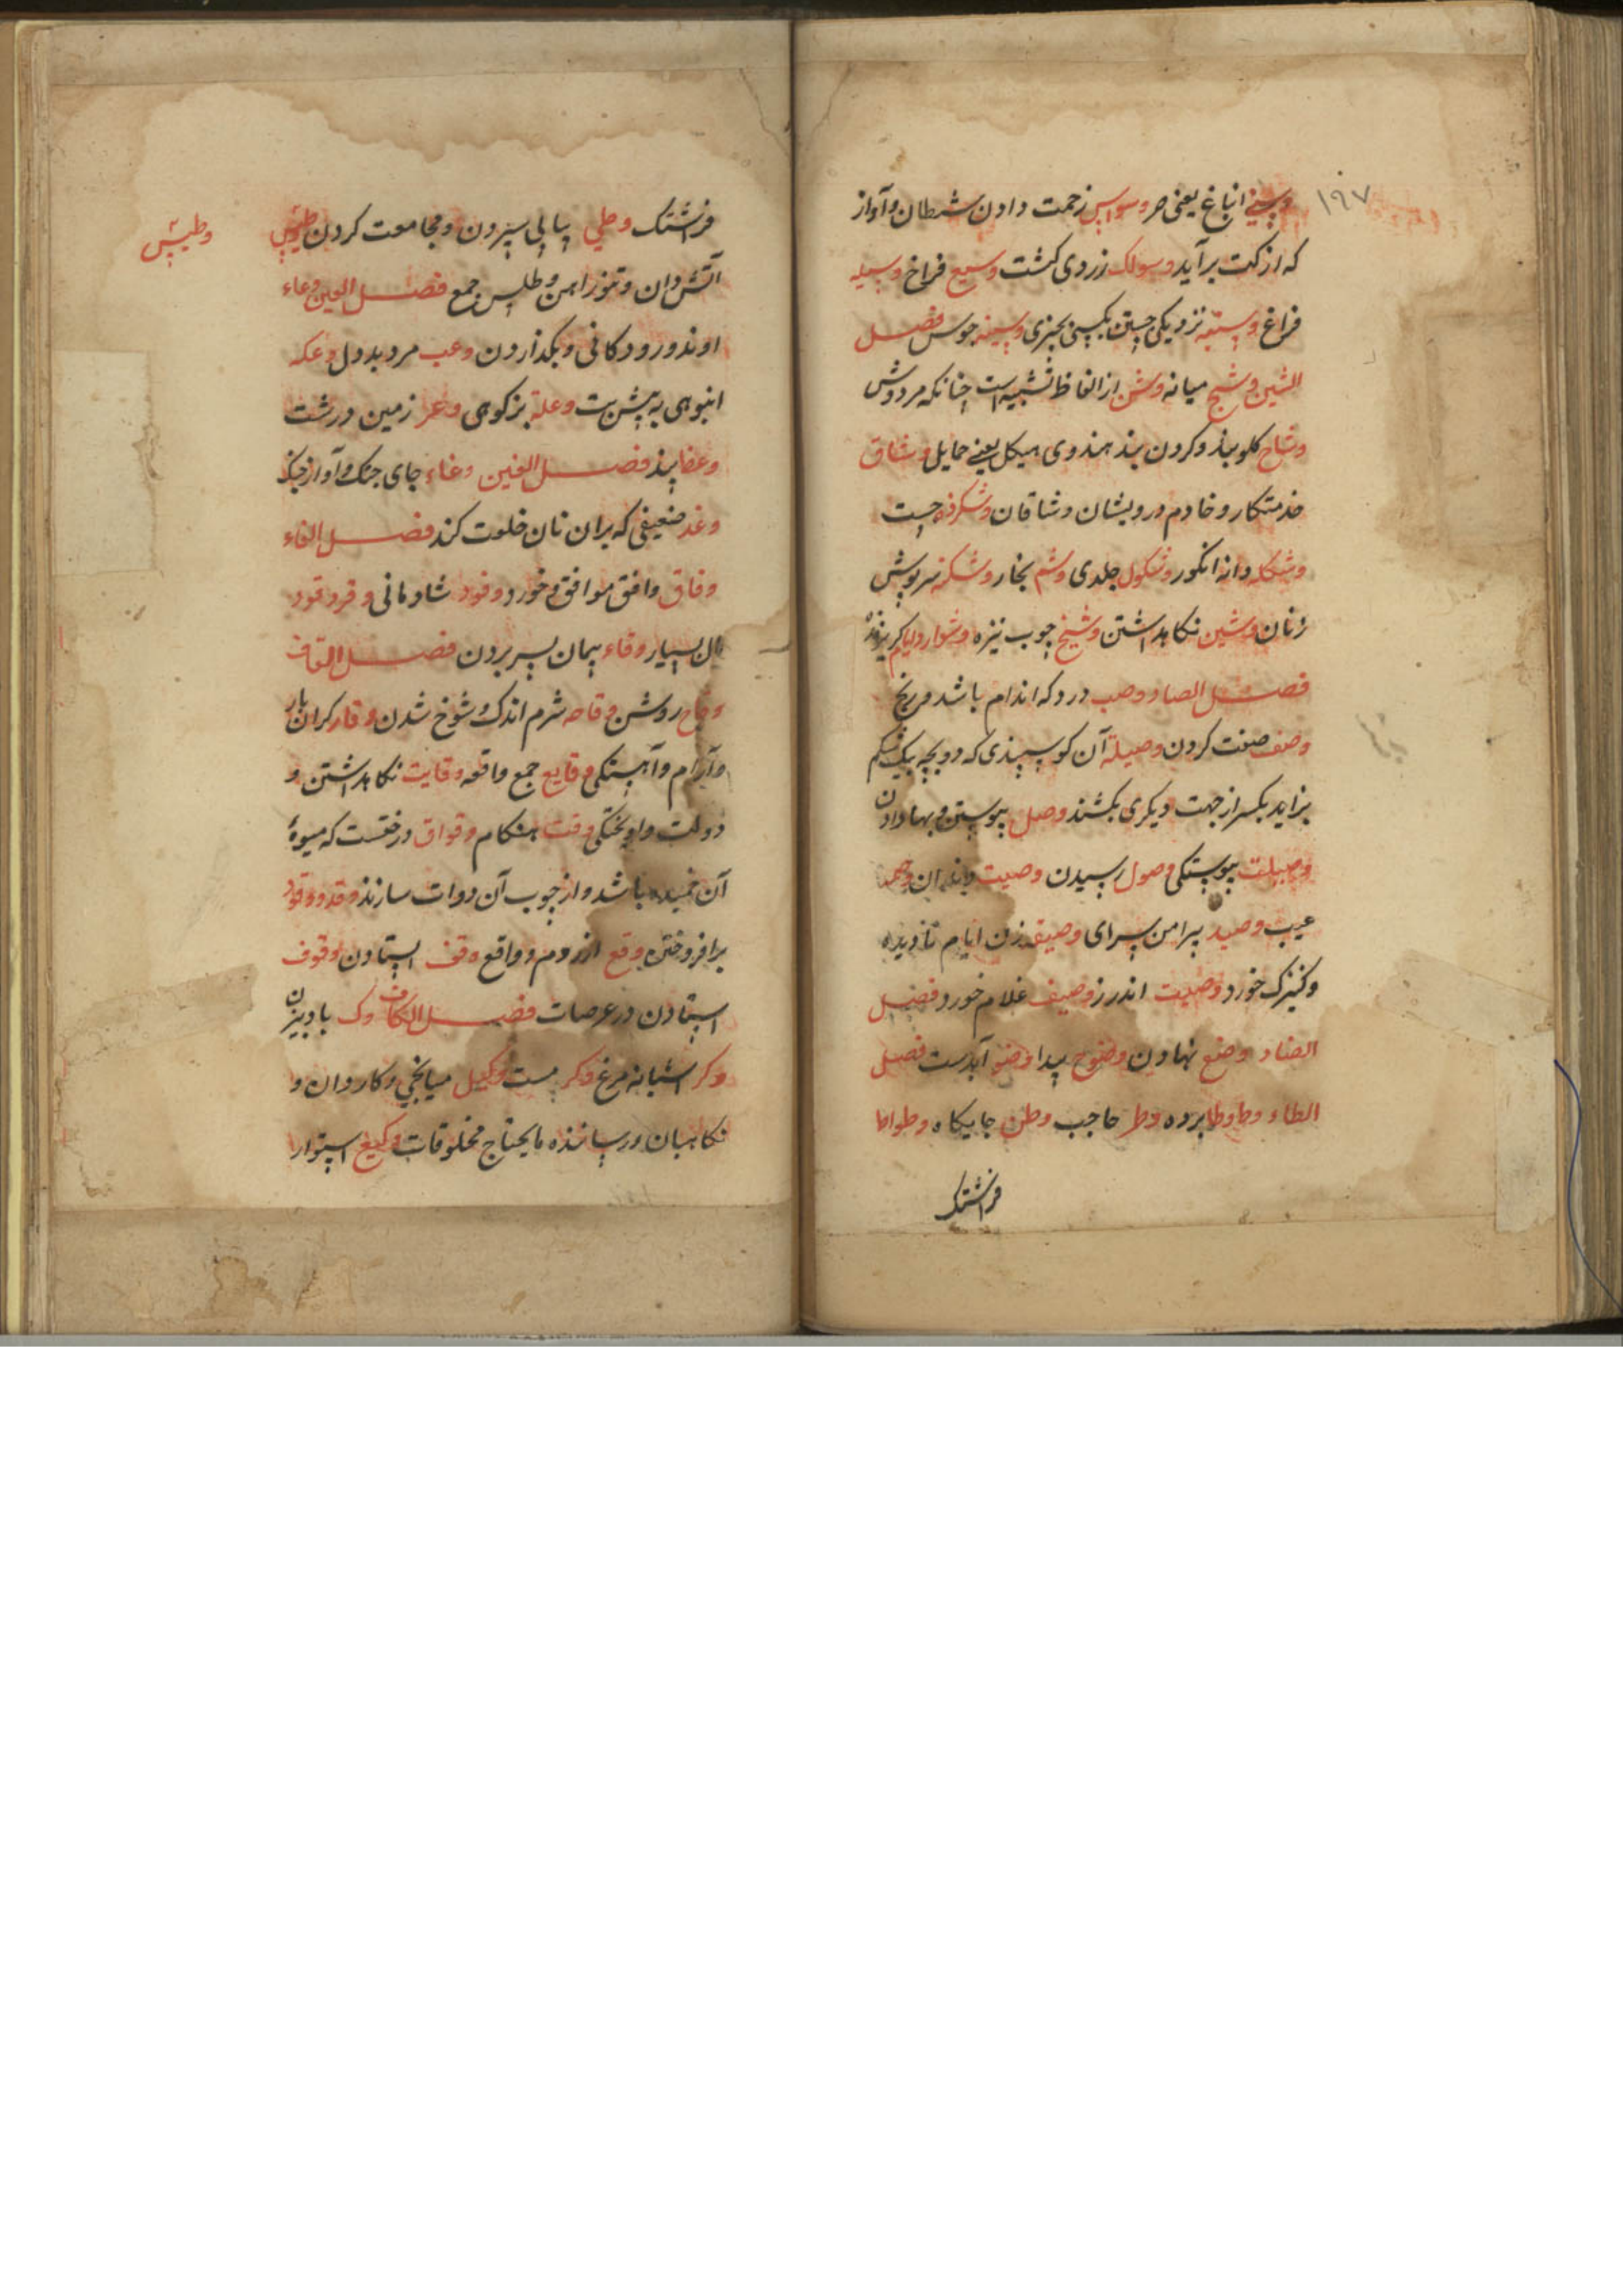 ۱۹۷
وسنی انباغ یعنی حر وسواس زحمت دادن شیطان و آواز
که از کت برآید وسولک زردی کشت وسیع فراخ وسیله
فراغ وسیته نزدیکی جستن بکسی بچیزی وسینه جوس فصل
الشین وشیج میانه وش از الفاظ تشبیه است چنانکه مردوش
وشاح کلوبند و کردن بند هندوی هیکل یعنی حمایل وشاق
خدمتکار و خادم درویشان وشاقان وشکرفه چست
وشکله دانه انکور وشکول جلدی وشم بخار وشکنه سرپوش
زنان وشین نکاهداشتن وشیخ چوب نیزه وشوار
فصل الصاد وصب درد که اندام باشد و رنج
وصف صفت کردن وصیله آن کوسپندی که دو بچه بیک شکم
بزاید یکسر از جهت دیکری بکشند وصل پیوستن و بها دادن
وصیلت پیوستکی وصول رسیدن وصیت
عیب وصید پیرامن سرای وصیفه زن ایام نادیده
و کنیزک خورد وصیت اندرز وصیف غلام خورد فصل
الضاد وضع نهادن وضوح پیدا وضو آبدست فصل
الطاء وطا وطا برده وطر حاجب وطن جایکاه وطواط
فراشتک
فراشتک وطی پیاپی سپردن و مجامعت کردن وطیس
وطیس
آتش دان و تنور آهن وطیس جمع فصل العین وعاء
آوند و رودکانی و بکذاردن وعب مرد بددل وعکه
انبوهی به پشن پت وعله بز کوهی وعر زمین درشت
وعظ پند فصل الغین وغاء جای جنک و آواز جنک
وغد ضعیفی که بران نان خلوت کند فصل الفاء
وفاق وافق موافق و خورد وفود شادمانی وفر وفور
مال بسیار وفاء پیمان بسر بردن فصل القاف
وقاح روشن وقاحه شرم اندک و شوخ شدن وقار کران بار
و آرام و آهستکی وقایع جمع واقعه وقایت نکاهداشتن و
دولت و آویختکی وقت هنکام وقواق درختست که میوهٔ
آن خمیده باشد و از چوب آن دوات سازند وقد ووقود
برافروختن وقع ارز ومردم و واقع وقف ایستادن وقوف
ایستادن در عرصات فصل الکاف وک بادبیزن
وکر آشیانه مرغ وکر مست وکیل میانجی و کاروان و
نکاهبان و رساننده مایحتاج مخلوقات وکیع استوار